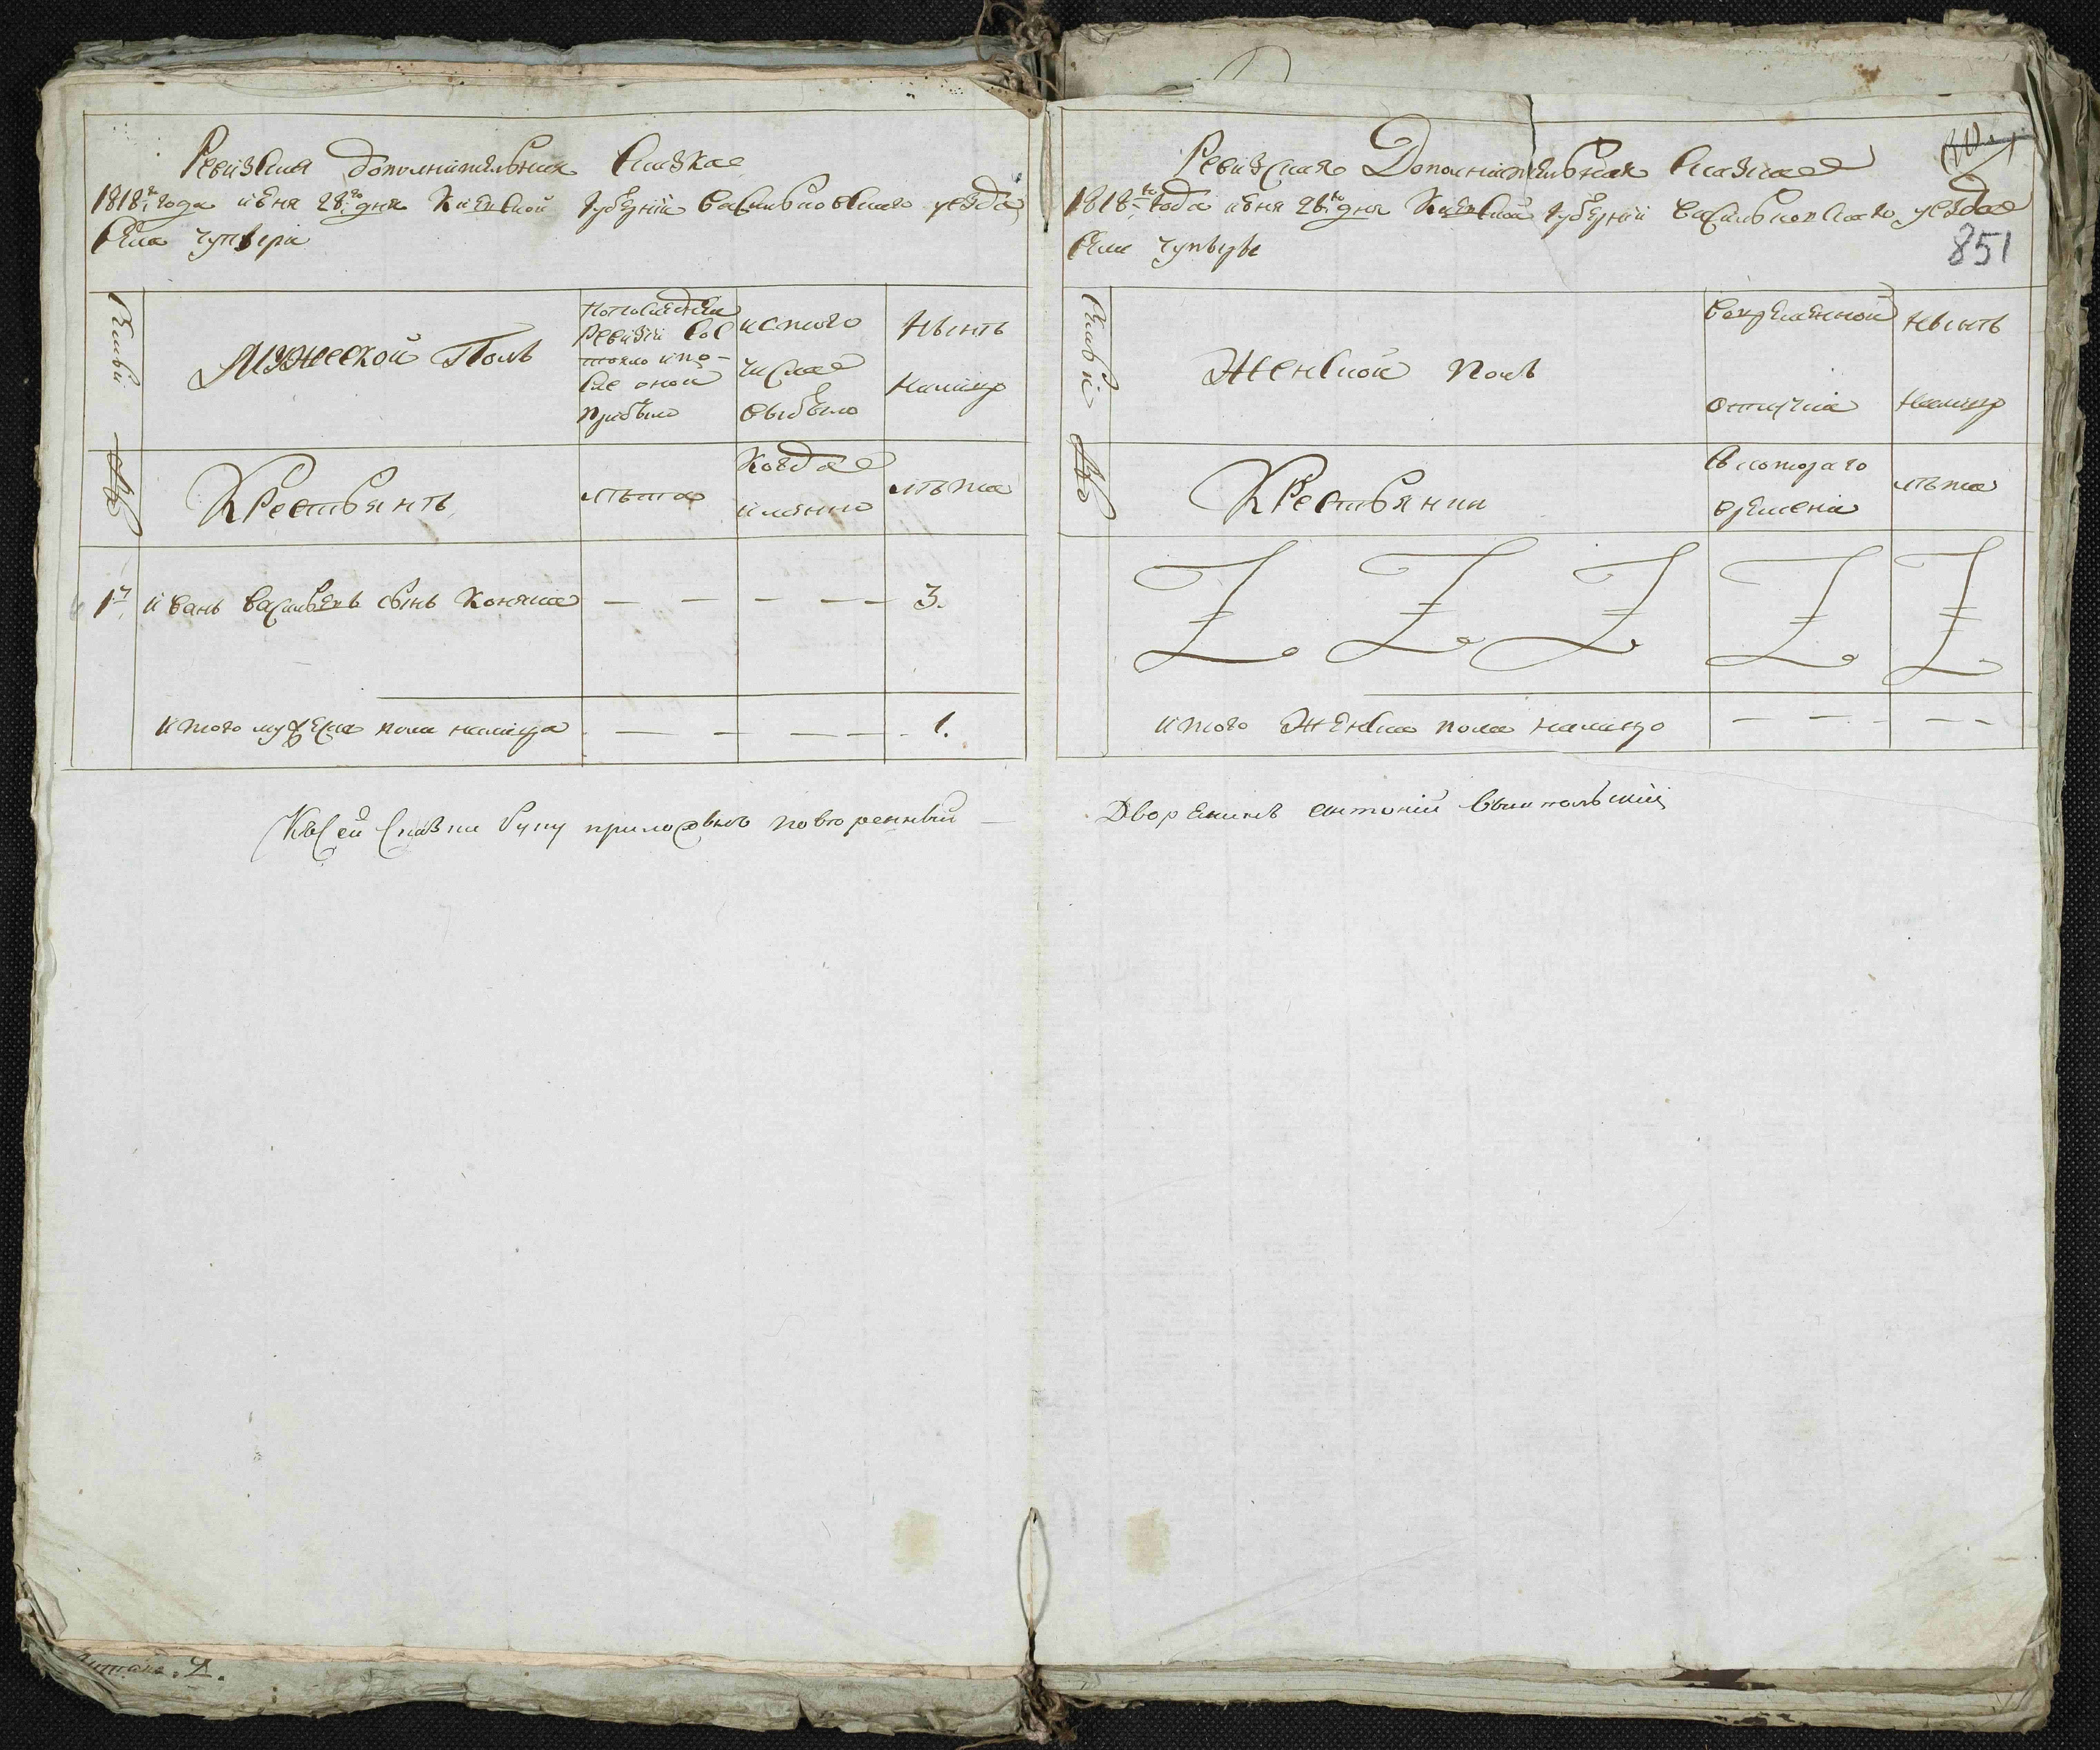 Ревизская дополнительная сказка
1818 года июня 28го дня Киевской губернии Васильковского уезда
села Чупыры
Семьи
Мужеской Полъ
По последней
ревизии сос
тояло и по-
сле оной
прибыло
ис того
числа
выбыло
Нынѣ
налицо
№
Крестьянѣ
лѣта
Когда
именно
лѣта
1й Иванъ Васильевъ сынъ Коняша — — — — — 3.
Итого мужеска пола налицо — — — — 1.
Къ сей скаски руку приложилъ поверенный —
Ревизская Дополнительная сказка
1818го года июня 28го дня Киевской губернии Васильковскаго уезда
села Чупыры
851
Семьи
Женской полъ
во временной
отлучке
Нынѣ
налицо
№
Крестьянки
С котораго
времени
лѣта
итого женска пола налицо — — — —
Дворянинъ Антоний